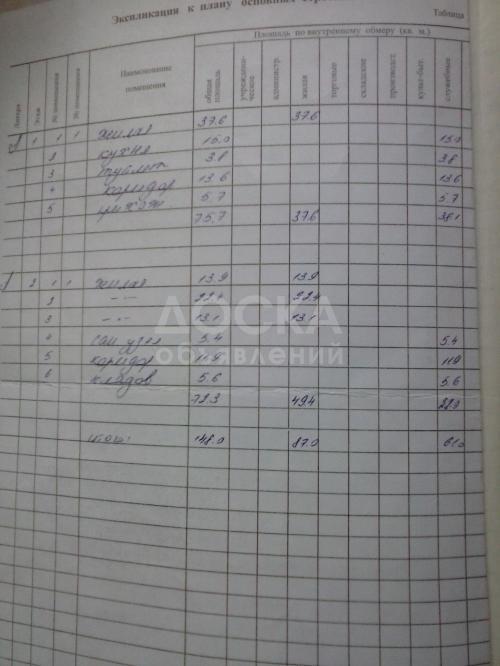 Экспликация к плану основных
Таблица
Литера
Этаж
№ помещения
№ помещения
Наименование помещения
Площадь по внутреннему обмеру (кв. м.)
общая площадь
учрежденческое
администр.
жилая
торговые
складские
производст.
культ-быт.
служебные
1 1 1 жилая 37.6 37.6
2 кухня 15.0 15.0
3 туалет 3.8 3.8
4 коридор 13.6 13.6
5 5.7 5.7
75.7 37.6 38.1
2 1 1 жилая 13.9 13.9
2 -"- 22.4 22.4
3 -"- 13.1 13.1
4 сан узел 5.4 5.4
5 коридор 11.9 11.9
6 кладов 5.6 5.6
72.3 49.4 22.9
итого: 148.0 87.0 61.0
ДОСКА
объявлений